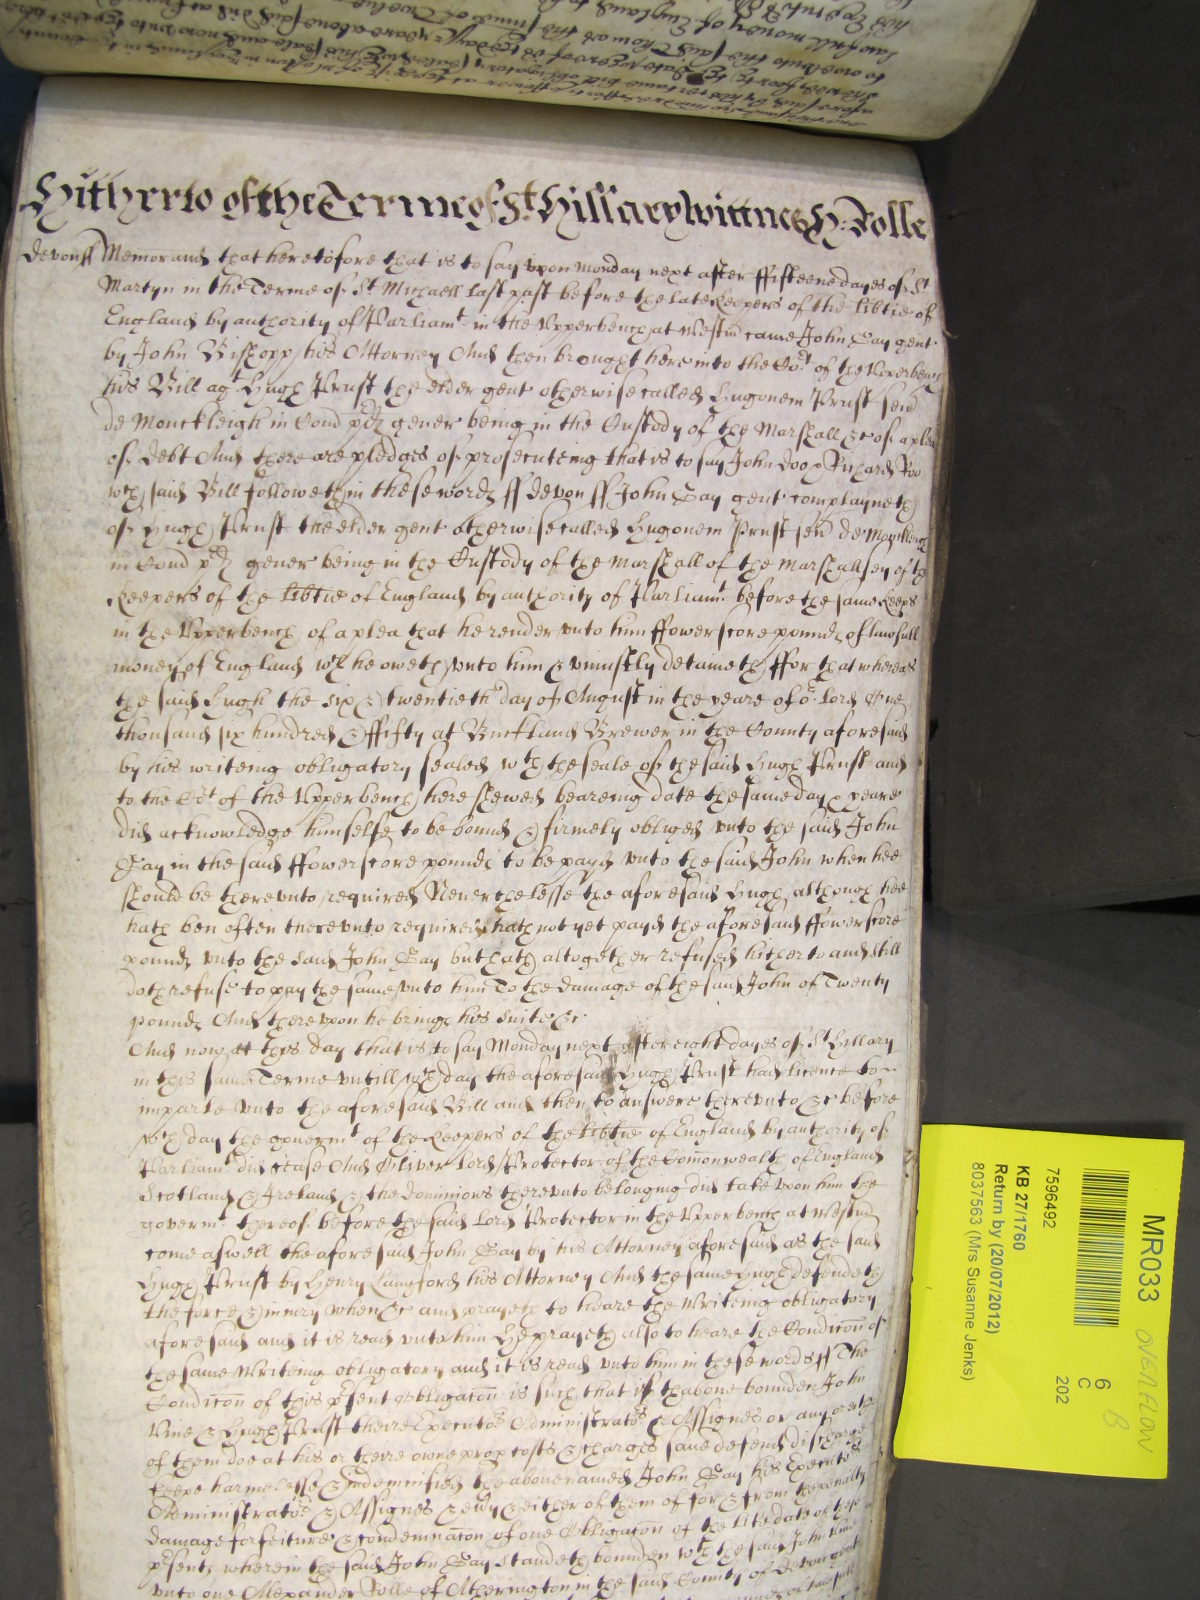 Hitherto of the Terme of St. Hillary wittnes H: Rolle
Devon ss Memorand that heretofore that is to say vpon Monday next after ffifteene dayes of St
Martyn in the Terme of St Michaell last past before the late Keepers of the libtie of
England by authority of Parliamt. in the Vpperbench at Westm came John Gay gent
by John Bishopp his Attorney And then brought here into the Cort of the Vpperbench
his Bill agt Hugh Prust the elder gent otherwise called Hugonem Prust sen
de Monckleigh in Com pd gener being in the Custody of the Marshall &c of a plea
of debt And there are pledges of prosecuteing that is to say John Doo & Richard Roo
wch said Bill followeth in these wordes ss Devon ss John Gay gent complayneth
of Hugh Prust the elder gent otherwise called Hugonem Prust sen de Monckleigh
in Com pd gener being in the Custody of the Marshall of the Marshallsey of the
Keepers of the libtie of England by authority of Parliamt. before the same Keeps
in the Vpperbench of a plea that he render vnto him ffowerscore poundes of lawfull
money of England wch he oweth vnto him & vniustly deteineth ffor that whereas
the said Hugh the six & twentieth day of August in the yeare of or Lord One
thousand six hundred & ffifty at Buckland Brewer in the County aforesaid
by his writeing obligatory sealed wth the seale of the said Hugh Prust and
to the Cort of the Vpperbench here shewed beareing date the same day & yeare
did acknowledge himselfe to be bound & firmely obliged vnto the said John
Gay in the said ffowerscore poundes to be payd vnto the said John when hee
should be therevnto required Neverthelesse the aforesaid Hugh although hee
hath ben often therevnto required hath not yet payd the aforesaid ffowerscore
poundes vnto the said John Gay but hath altogether refused hitherto and still
doth refuse to pay the same vnto him To the damage of the said John of Twenty
poundes And therevpon he bringes his suite &c
And now at this day that is to say Monday next after eight dayes of St Hillary
in this same Terme vntill wch day the aforesaid Hugh Prust had licence to
imparle vnto the aforesaid Bill and then to answere therevnto &c before
wch day the govermt of the Keepers of the libtie of England by authority of
Parliamt did cease And Oliver Lord Protector of the Comonwealth of England
Scotland & Ireland & the dominions therevnto belonging did take vpon him the
govermt thereof before the said Lord Protector in the Vpperbench at Westm
come aswell the aforesaid John Gay by his Attorney aforesaid as the said
Hugh Prust by Henry Langford his Attorney And the same Hugh defendeth
the force & iniury when &c and prayeth to heare the Writeing obligatory
aforesaid and it is read vnto him He prayeth also to heare the Condicon of
the same Writeing obligatory and it is read vnto him in these words ss The
Condicon of this psent obligacon is such that if thabove bounden John
Vine & Hugh Prust theire Executors Administrators & Assignes or any or either
of them doe at his or theire owne prop costs & charges save defend discharge
keepe harmelesse & indemnified the above named John Gay his Executors
Administrators & Assignes & every & either of them of for & from the penalty
damage forfeiture & condemnacon of one Obligacon of the like date of these
psents wherein the said John Gay standeth bounden wth the said John Vine
vnto one Alexander Rolle of Atherington in the said County of Devon gent
MR033
OVERFLOW
6
C
202
B
7596492
KB 27/1760
Return by (20/07/2012)
8037563 (Mrs Susanne Jenks)